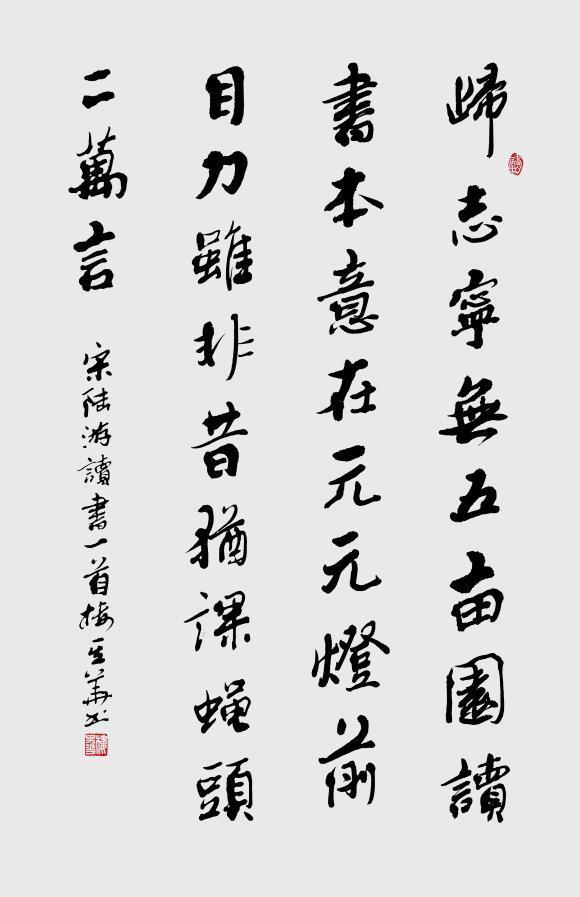 歸志寧無五亩園讀
書本意在元元燈前
目力雖非昔猶課蝇頭
二萬言
宋陆游讀書一首梅